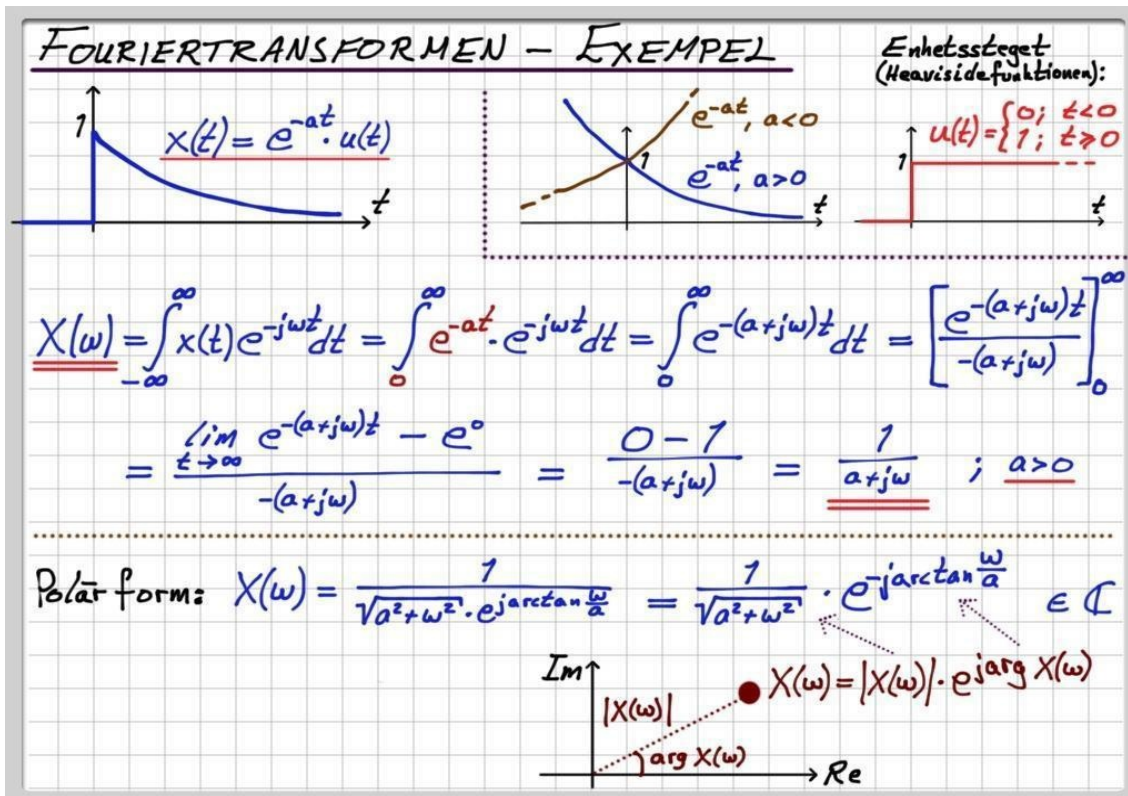 FOURIERTRANSFORMEN – EXEMPEL
Enhetssteget
(Heavisidefunktionen):
1
x(t) = e^{-at} · u(t)
t
e^{-at}, a<0
1
e^{-at}, a>0
t
u(t) = {0; t<0
1; t≥0
1
t
X(ω) = ∫_{-∞}^{∞} x(t)e^{-jωt}dt = ∫_{0}^{∞} e^{-at} · e^{-jωt}dt = ∫_{0}^{∞} e^{-(a+jω)t}dt = [e^{-(a+jω)t} / -(a+jω)]_{0}^{∞}
= (lim_{t→∞} e^{-(a+jω)t} – e^{0}) / -(a+jω) = (0–1) / -(a+jω) = 1 / (a+jω) ; a>0
Polär form: X(ω) = 1 / (√(a²+ω²) · e^{j arctan ω/a}) = 1 / √(a²+ω²) · e^{-j arctan ω/a} ∈ ℂ
Im
X(ω) = |X(ω)| · e^{j arg X(ω)}
|X(ω)|
arg X(ω)
Re